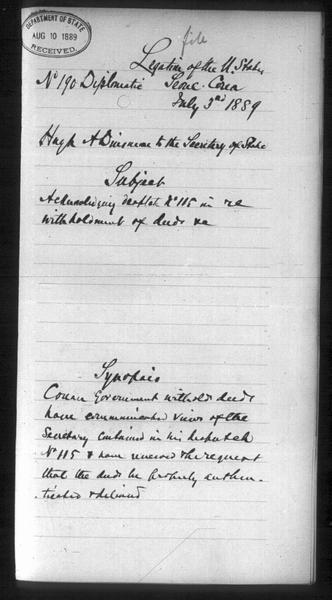 DEPARTMENT OF STATE
AUG 10 1889
RECEIVED.
file
Legation of the U. States
No 190 Diplomatic Seoul Corea
July 3rd 1889
Hugh A Dinsmore to the Secretary of State
Subject
Acknowledging despatch No 115 in re
withholdment of deeds &c
Synopsis
Corean Government withholds deeds
have communicated views of the
Secretary contained in his despatch
No 115 & have renewed the request
that the deeds be properly authen-
-ticated & delivered